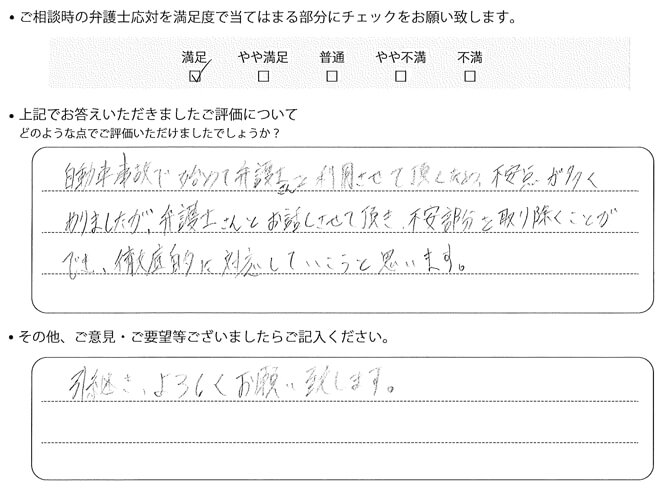 • ご相談時の弁護士応対を満足度で当てはまる部分にチェックをお願い致します。
満足 やや満足 普通 やや不満 不満
• 上記でお答えいただきましたご評価について
どのような点でご評価いただけましたでしょうか？
自動車事故で始めて弁護士さんを利用させて頂くため、不安点が多く
ありましたが、弁護士さんとお話しさせて頂き、不安部分を取り除くことが
でき、徹底的に対応していこうと思います。
• その他、ご意見・ご要望等ございましたらご記入ください。
引継き、よろしくお願い致します。